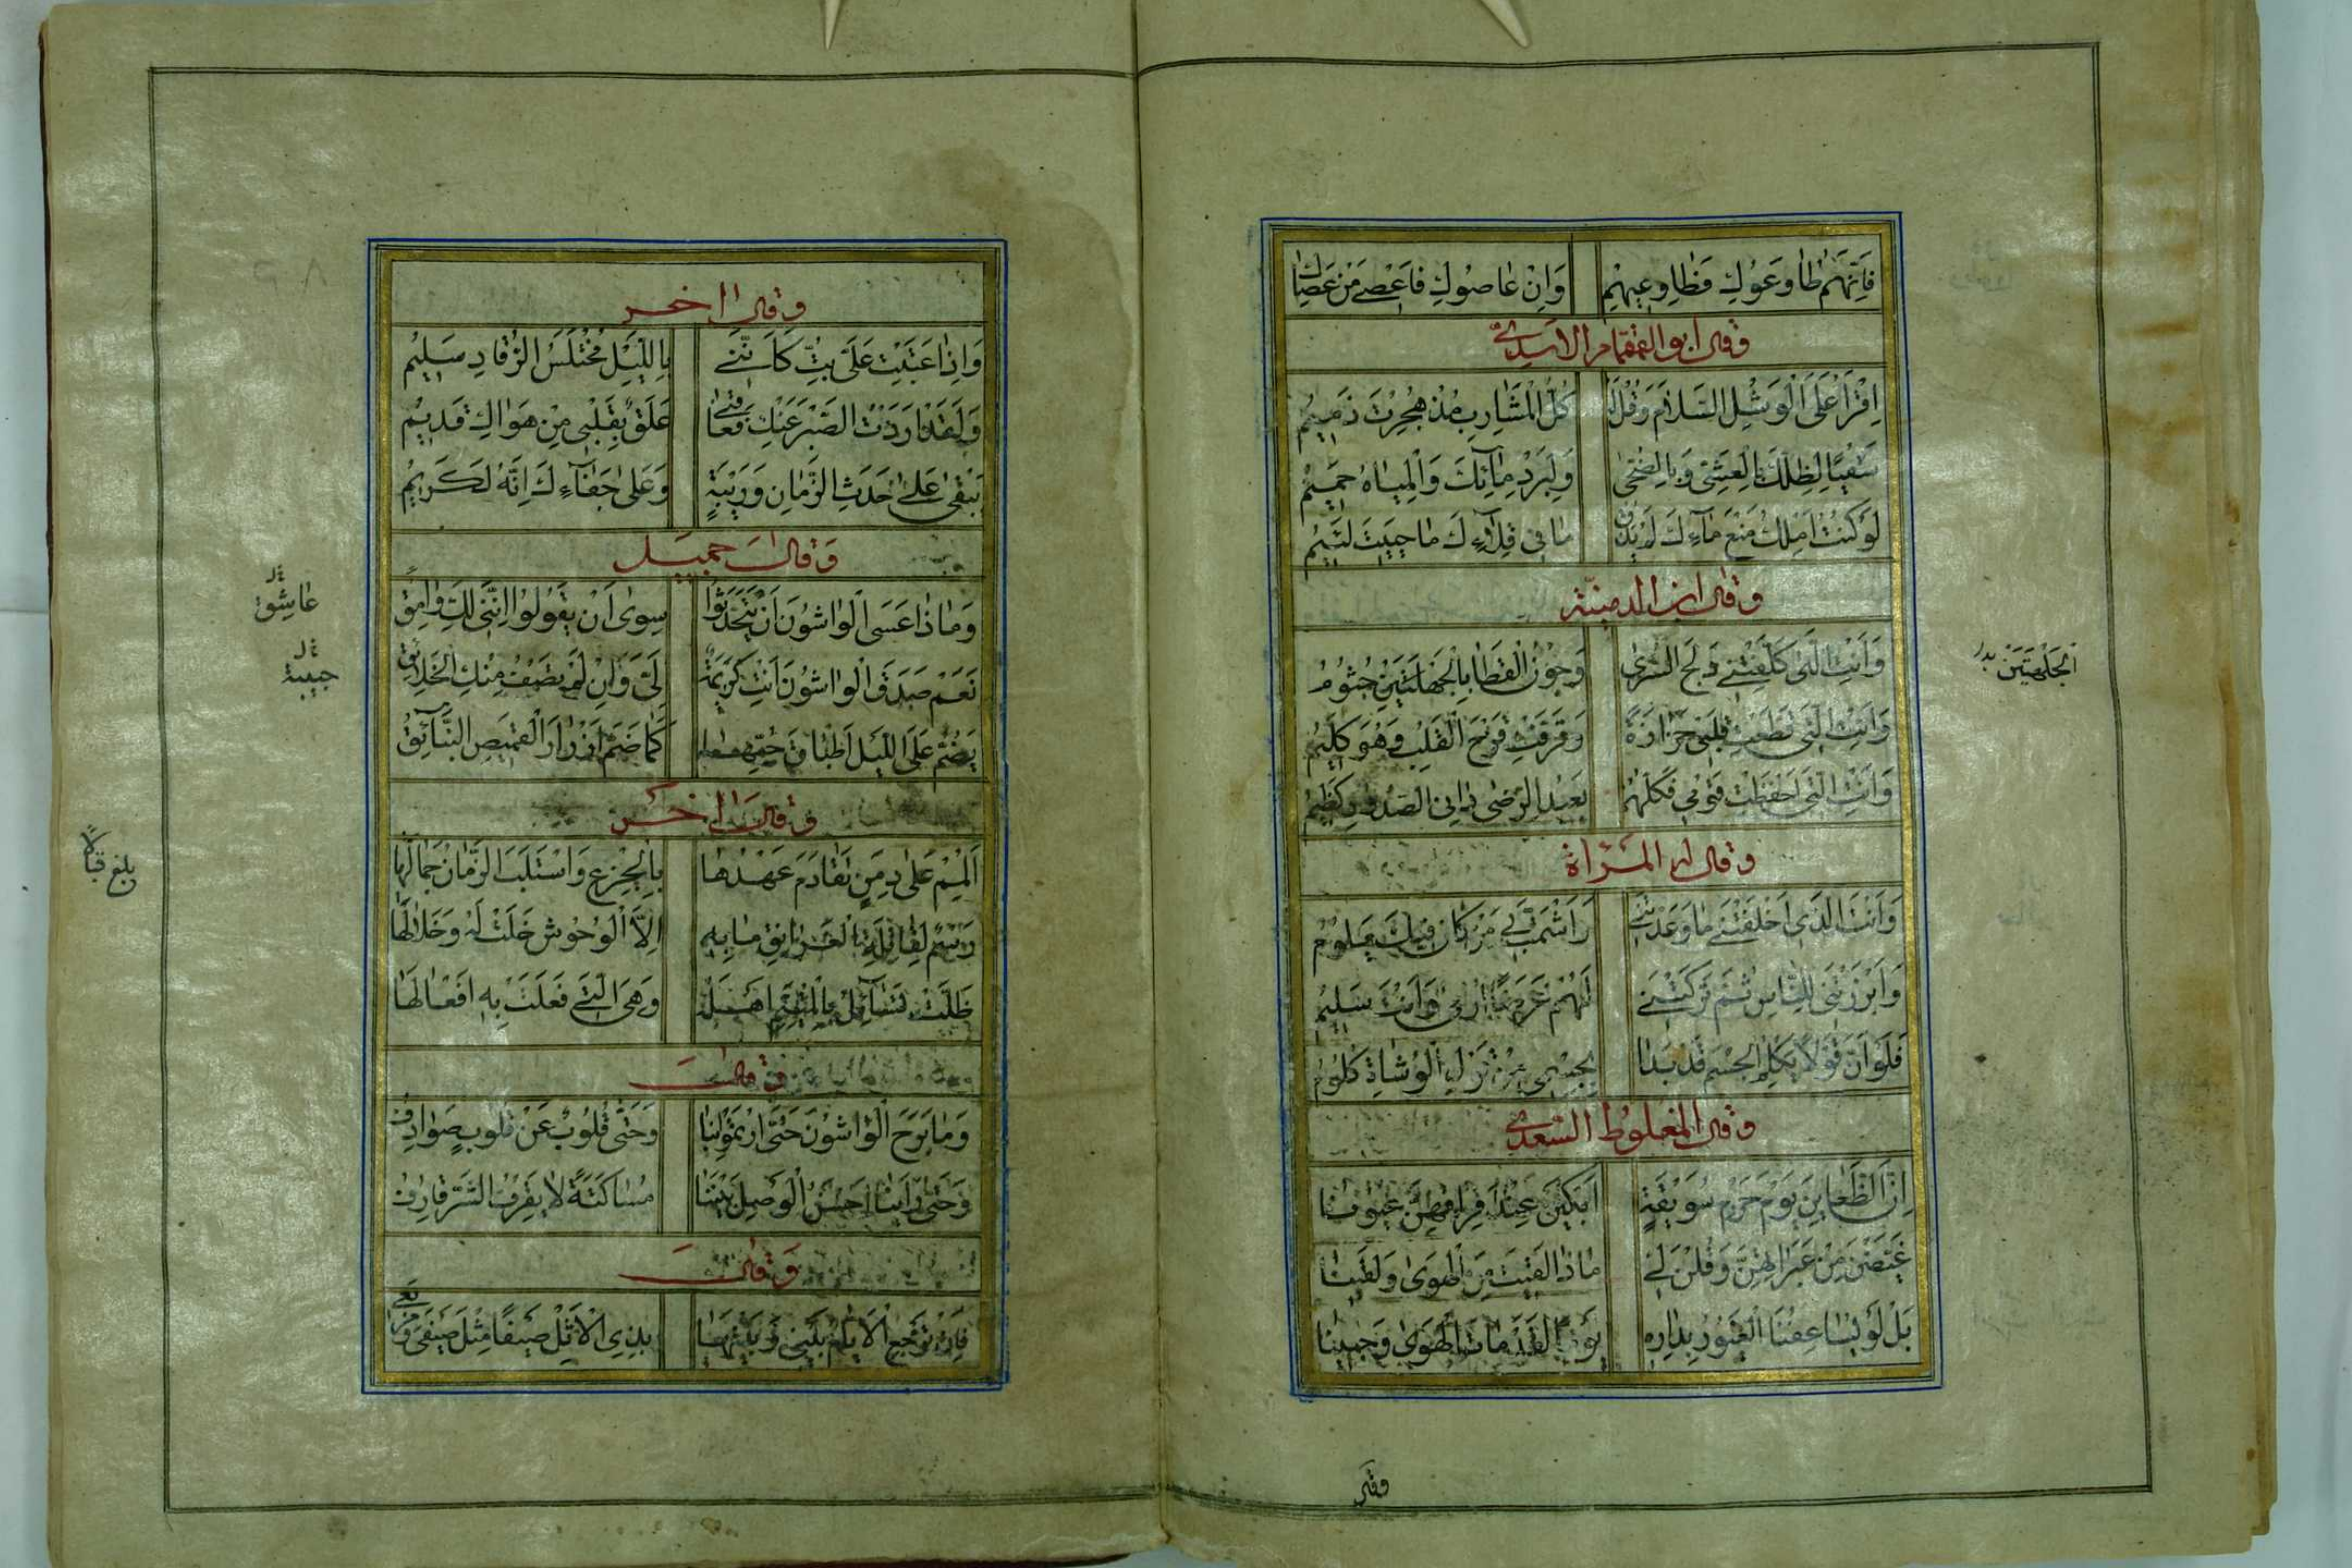 فَاِنْهُمُ طٰاوَعُوكِ فَطٰاوِعِيهِمْ وَاِنْ عٰاصُوكِ فَاَعْصِى مَنْ عَصٰاكِ
وقال ابو القمقام الاسدى
اِقْرَأْ عَلَى الْوَشْلِ السَّلاٰمَ وَقُلْ لَهُ كُلُّ الْمَشٰارِبِ مُذْ هُجِرْتَ ذَمِيمُ
سَقْيًا لِظِلِّكَ بِالْعَشِىِّ وَبِالضُّحٰى وَلِبَرْدِ مٰائِكَ وَالْمِيٰاهُ حَمِيمُ
لَوْ كُنْتُ اَمْلِكُ مَنْعَ مٰاءِكَ لَمْ يَذُقْ مٰا فِى قِلاٰءِكَ مٰا حَيِيتُ لَئِيمُ
وقال ابن الدمينة
وَاَنْتِ الَّتِى كَلَّفْتِنِى دَلَجَ السُّرٰى وَجُونُ الْقَطٰا بِالْجَلْهَتَيْنِ جُثُومُ
وَاَنْتِ الَّتِى قَطَّعْتِ قَلْبِى حَزٰازَةً وَقَرَّفْتِ قَرْحَ الْقَلْبِ وَهْوَ كَلِيمُ
وَاَنْتِ الَّتِى اَحْفَظْتِ قَوْمِى فَكُلُّهُمْ بَعِيدُ الرِّضٰى دٰانِى الصُّدُودِ كَظِيمُ
الجَلْهَتَيْنْ
وقال المرأة
وَاَنْتَ الَّذِى اَخْلَفْتَنِى مٰا وَعَدْتَنِى وَاَشْمَتَّ بِى مَنْ كٰانَ فِيكَ يَلُومُ
وَاَبْرَزْتَنِى لِلنّٰاسِ ثُمَّ تَرَكْتَنِى لَهُمْ غَرَضًا اُرْمٰى وَاَنْتَ سَلِيمُ
فَلَوْ اَنَّ قَوْلاً يَكْلِمُ الْجِسْمَ قَدْ بَدٰا بِجِسْمِى مِنْ قَوْلِ الْوُشٰاةِ كُلُومُ
وقال المغلوط السعدى
اِنَّ الظَّعٰايِنَ يَوْمَ حَزْمِ سُوَيْقَةٍ اَبْكَيْنَ عِنْدَ فِرٰاقِهِنَّ عُيُونٰا
غَيَّضْنَ مِنْ عَبَرٰاتِهِنَّ وَقُلْنَ لِى مٰاذٰا لَقِيتَ مِنَ الْهَوٰى وَلَقِينٰا
بَلْ لَوْ يُسٰاعِفُنَا الْغَيُورُ بِدٰارِهِ يَوْمًا لَقَدْ مٰاتَ الْهَوٰى وَحَيِينٰا
وقال اخر
وَاِذٰا عَتَبْتِ عَلَىَّ بِتُّ كَاَنَّنِى بِاللَّيْلِ مُخْتَلَسُ الرُّقٰادِ سَلِيمُ
وَلَقَدْ اَرَدْتُ الصَّبْرَ عَنْكِ فَعٰاقَنِى عَلَقٌ بِقَلْبِى مِنْ هَوٰاكِ قَدِيمُ
يَبْقٰى عَلٰى حَدَثِ الزَّمٰانِ وَرَيْبِهِ وَعَلٰى جَفٰاءِكِ اِنَّهُ لَكَرِيمُ
وَقالَ جميل
وَمٰاذٰا عَسَى الْوٰاشُونَ اَنْ يَتَحَدَّثُوا سِوٰى اَنْ يَقُولُوا اِنَّنِى لَكِ وٰامِقُ
عٰاشِقُ
نَعَمْ صَدَقَ الْوٰاشُونَ اَنْتِ كَرِيمَةٌ لَدَىَّ وَاِنْ لَمْ تَصْفُ مِنْكِ الْخَلاٰئِقُ
حبيبة
يَضُمُّ عَلَىَّ اللَّيْلُ اَطْبٰاقَ حُبِّهٰا كَمٰا ضَمَّ اَزْرٰارُ الْقَمِيصِ الْبَنٰائِقُ
وقال اخر
اَلْمِمْ عَلٰى دِمَنٍ تَقٰادَمَ عَهْدُهٰا بِالْجِزْعِ وَاسْتَلَبَ الزَّمٰانُ جَمٰالَهٰا
بلغ قبالاً
رَسْمٌ لِقٰاتِلَةِ الْغَرٰانِقِ مٰا بِهِ اِلاَّ الْوُحُوشُ خَلَتْ لَهُ وَخَلاٰ لَهٰا
ظَلَّتْ تُسٰائِلُ بِالْمُتَيَّمِ اَهْلَهُ وَهِىَ الَّتِى فَعَلَتْ بِهِ اَفْعٰالَهٰا
وقال
وَمٰا بَرِحَ الْوٰاشُونَ حَتّٰى ارْتَمَوْا بِنٰا وَحَتّٰى قُلُوبٌ عَنْ قُلُوبٍ صَوٰادِفُ
وَحَتّٰى رَاَيْنٰا اَحْسَنَ الْوَصْلِ بَيْنَنٰا مُسٰاكَتَةً لاٰ يَقْرِفُ الشَّرَّ قٰارِفُ
وَقالَ
فَاِنْ تَرْجِعِ الْاَيّٰامُ بَيْنِى وَبَيْنَهٰا بِذِى الْاَثْلِ صَيْفًا مِثْلَ صَيْفِى وَمَرْبَعِى